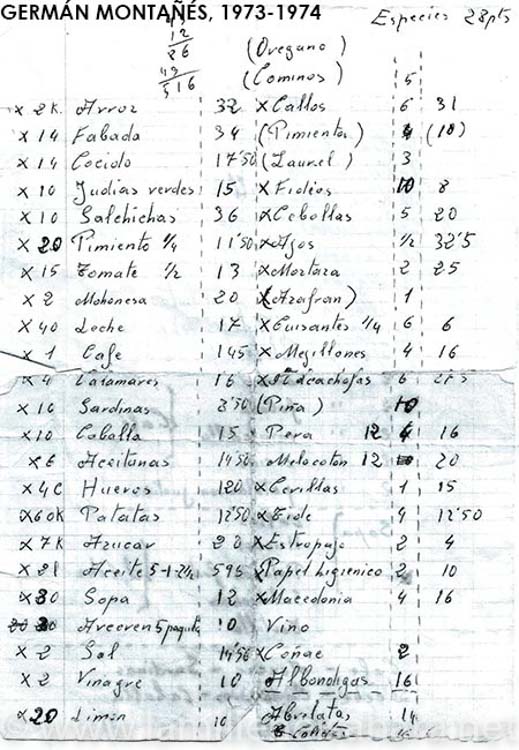 GERMÁN MONTAÑÉS, 1973-1974
Especies 28pts
12
26
516
(Oregano)
(Cominos) 5
x 2K. Arroz 32 x Callos 6 31
x 14 Fabada 34 (Pimienta) (18)
x 14 Cocido 17'50 (Laurel) 3
x 10 Judias verdes 15 x Fideos 10 8
x 10 Salchichas 36 x Cebollas 5 20
x 20 Pimiento 1/4 11'50 x Ajos 1/2 32'5
x 15 Tomate 1/2 13 x Mostaza 2 25
x 2 Mahonesa 20 (Azafran) 1
x 40 Leche 17 x Guisantes 1/4 6 6
x 1 Cafe 145 x Mejillones 4 16
x 4 Calamares 16 x Alcachofas 6
x 16 Sardinas 8'50 (Piña) 10
x 10 Caballa 15 Pera 12 16
x 6 Aceitunas 14'50 Melocoton 12 20
x 4C Huevos 120 x Cerillas 1 15
x 60K Patatas 12'50 x Eide 4 12'50
x 7K Azucar 20 x Estropajo 2 4
x 2l Aceite 5-1-2½ 595 x Papel higienico 2 10
x 30 Sopa 12 x Macedonia 4 16
Avecren 5 paquets 10 Vino
x 2 Sal 14'50 x Coñac 2
x 2 Vinagre 10 Albondigas 16
x 20 Limon 10 Abrelatas 14